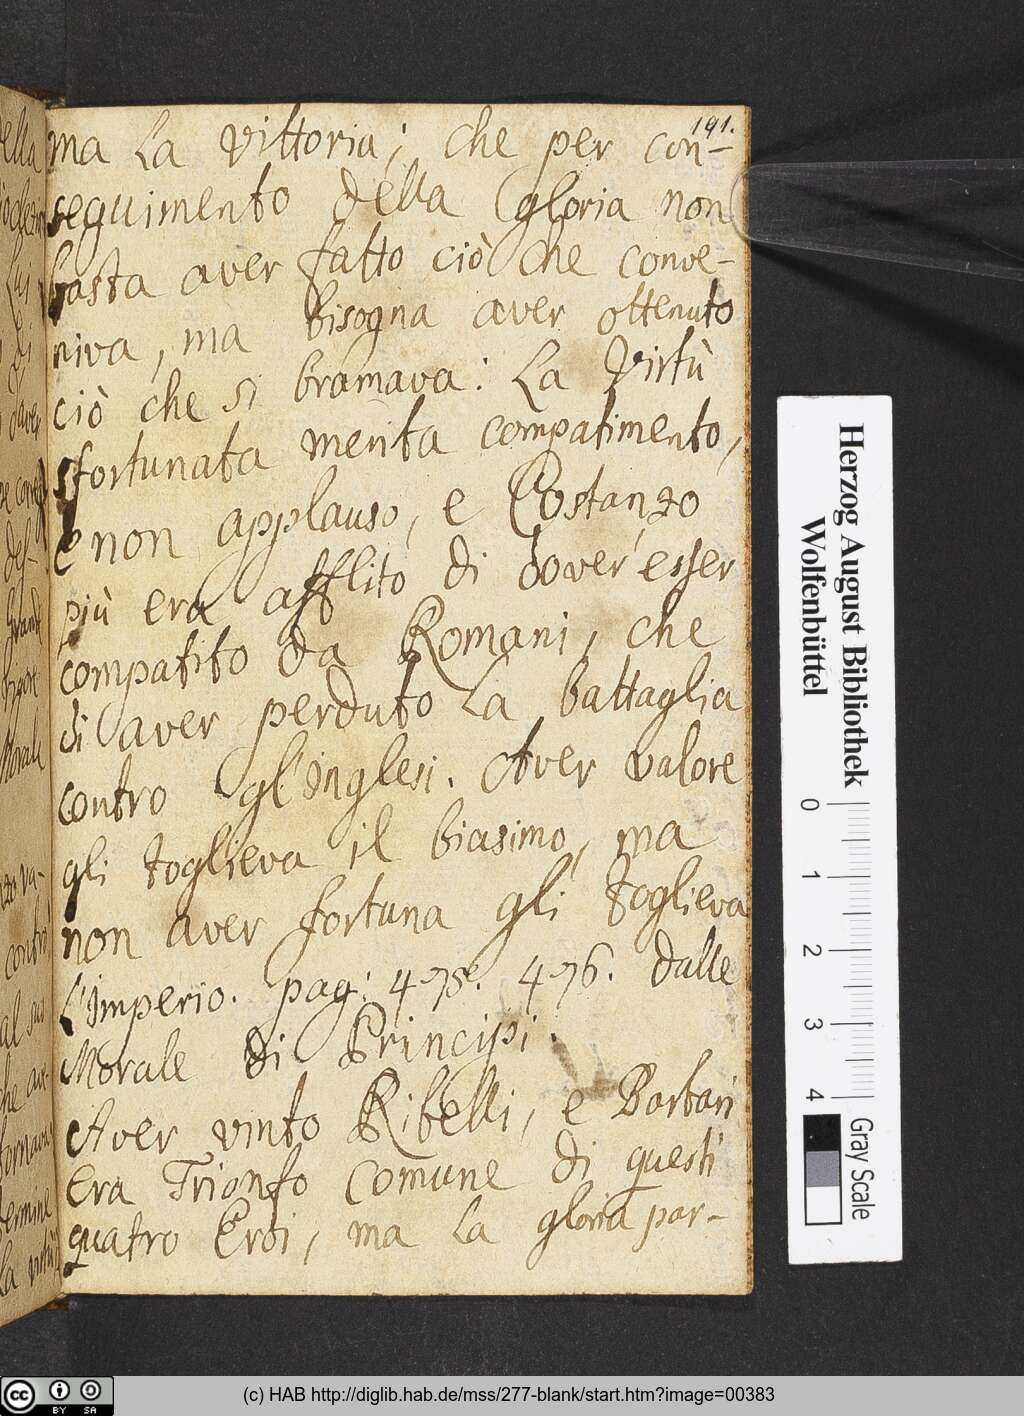 191.
ma La Vittoria; che per con-
seguimento della Gloria non
basta aver fatto ciò che conve-
niva, ma bisogna aver ottenuto
ciò che si bramava: La Virtù
sfortunata merita compatimento,
e non applauso, e Costanzo
più era afflito di dover esser
compatito da Romani, che
di aver perduto La battaglia
contro gl'Inglesi. Aver valore
gli toglieva il biasimo, ma
non aver fortuna gli toglieva
L'Imperio. pag: 475. 476. dalle
Morale di Principi.
Aver vinto Ribelli, e Barbari
era Trionfo comune di questi
quatro Eroi, ma La gloria par-
Herzog August Bibliothek
Wolfenbüttel
0 1 2 3 4
Gray Scale
cc BY SA
(c) HAB http://diglib.hab.de/mss/277-blank/start.htm?image=00383